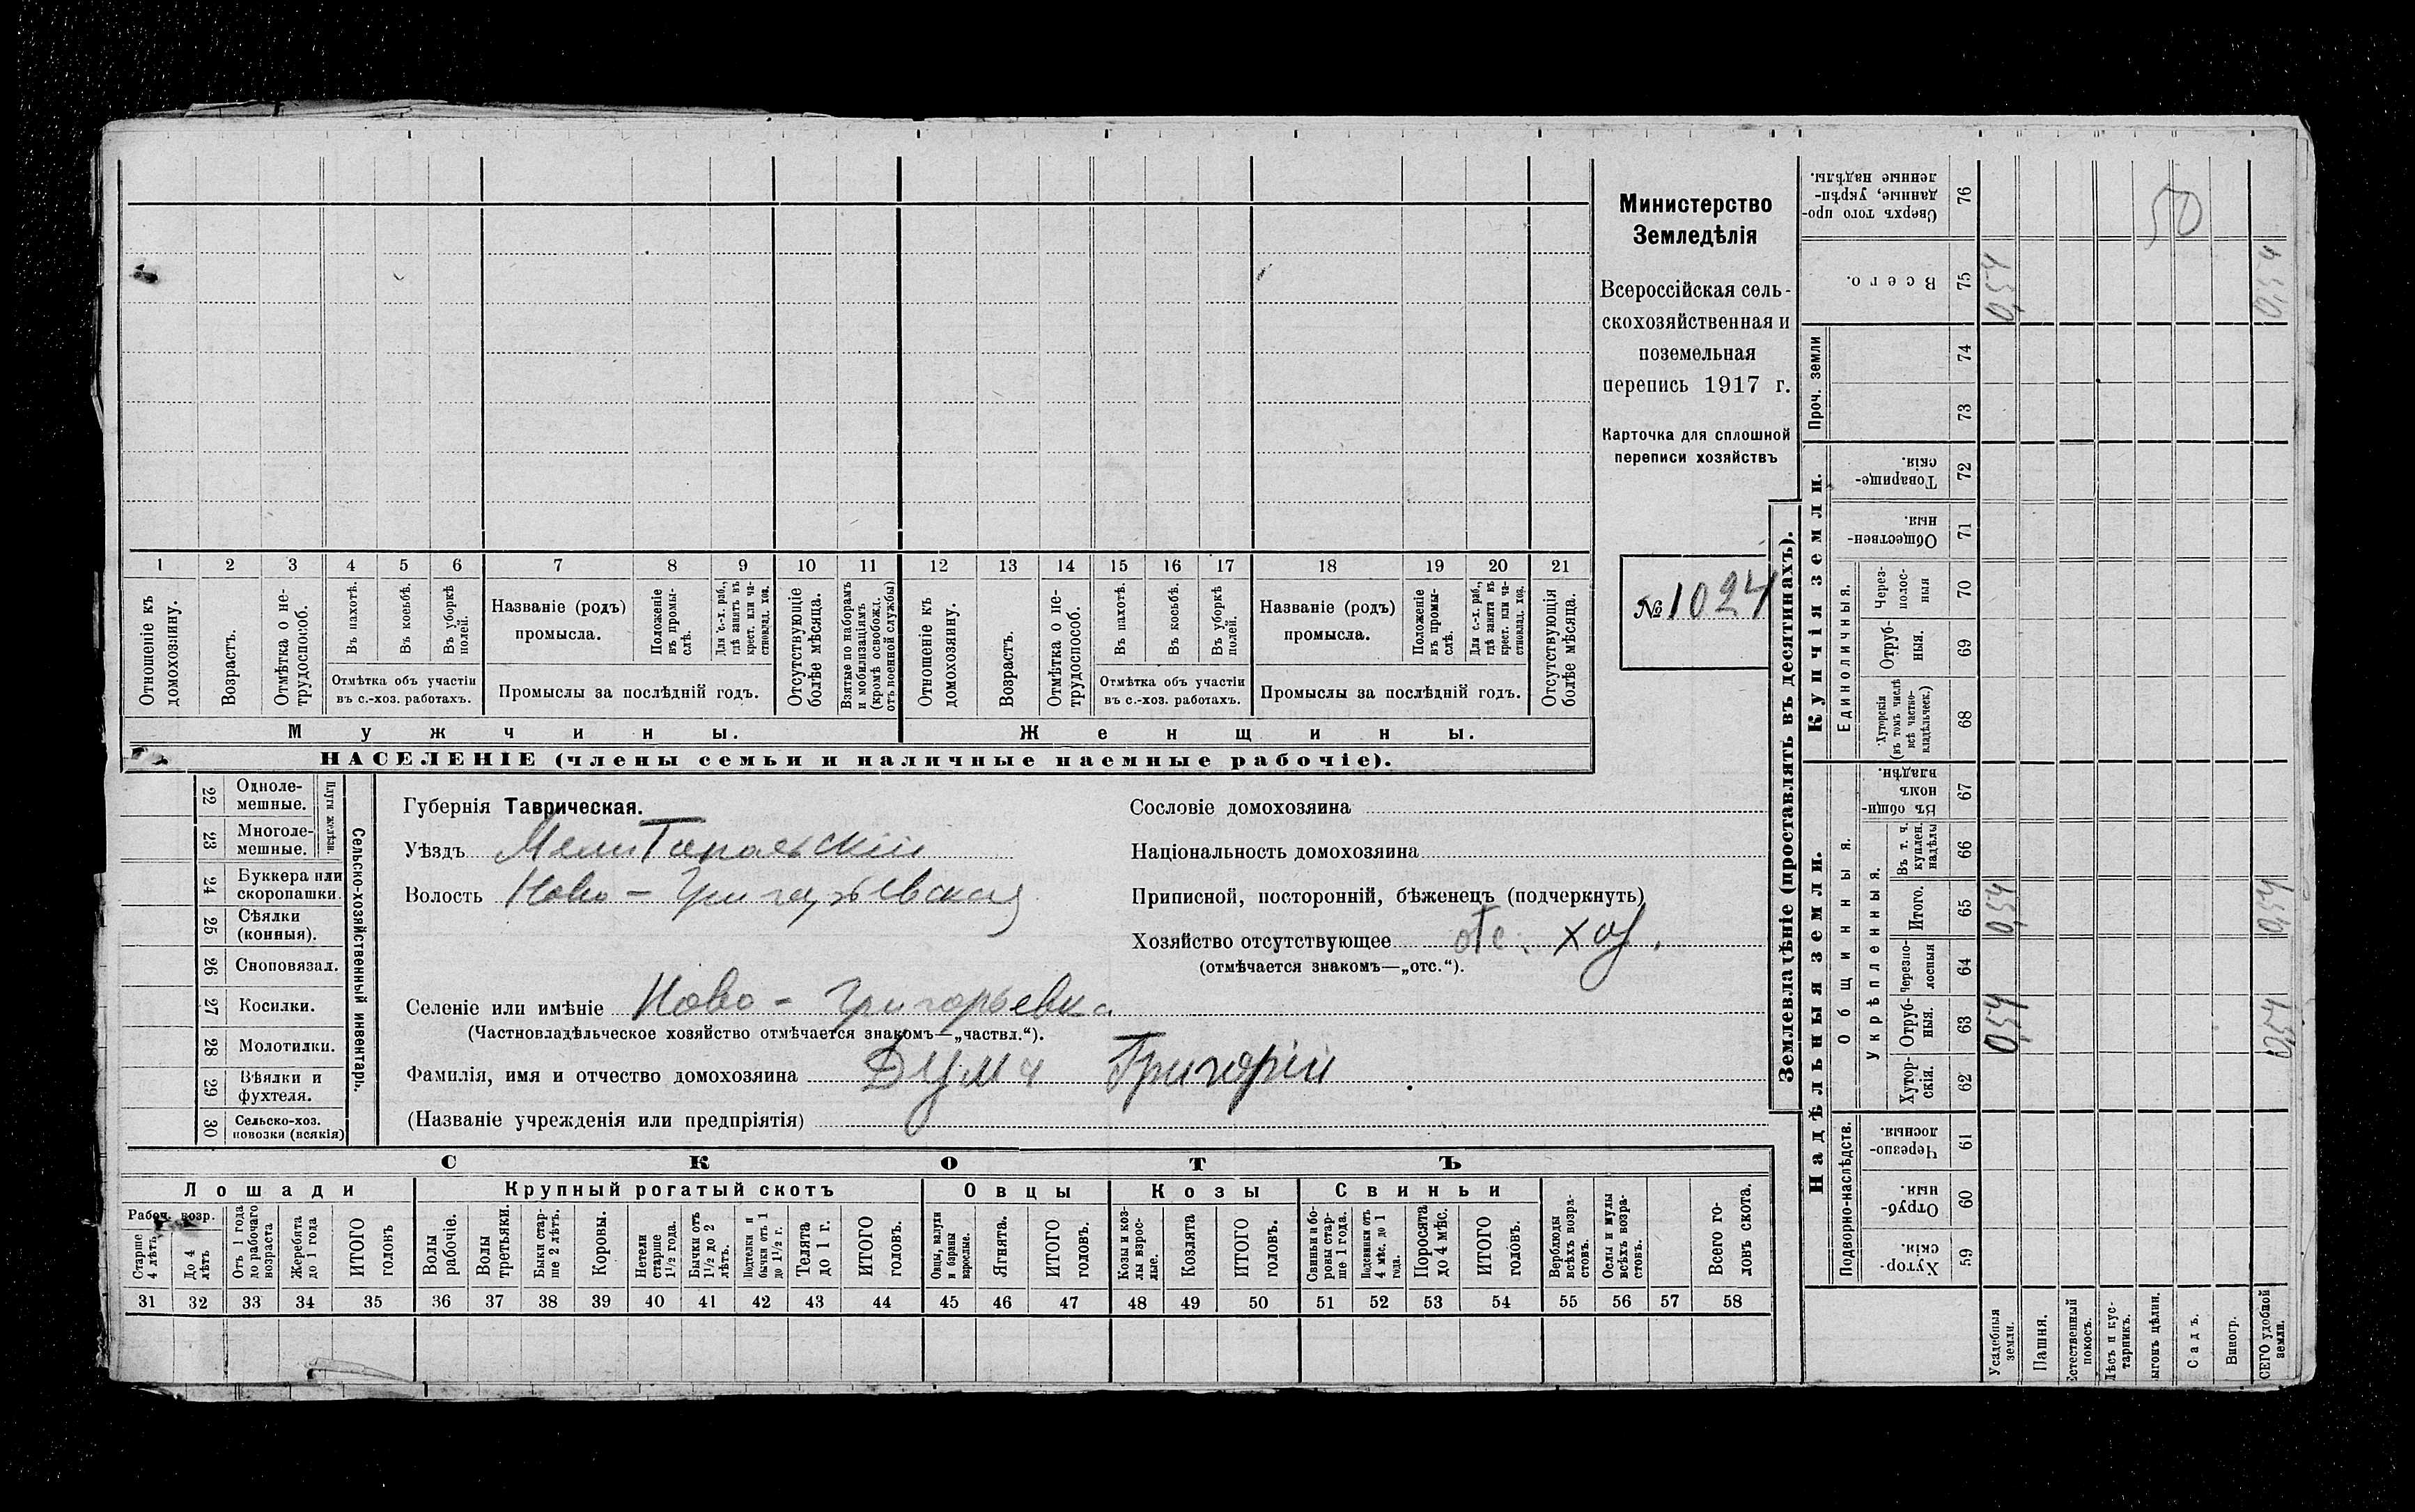 1 2 3 4 5 6 7 8 9 10 11 12 13 14 15 16 17 18 19 20 21
Отношеніе къ домохозяину.
Возрастъ.
Отмѣтка о не-трудоспособ.
Въ пахотѣ.
Въ косьбѣ.
Въ уборкѣ полей.
Отмѣтка объ участіи
въ с.-хоз. работахъ.
Названіе (родъ)
промысла.
Положеніе въ промы-слѣ.
Для с.-х. раб., гдѣ занятъ въ крест. или ча-стновлад. хоз.
Промыслы за послѣдній годъ.
Отсутствующіе болѣе мѣсяца.
Взятые по наборамъ и мобилизаціямъ (кромѣ освобожд. отъ военной службы)
Отношеніе къ домохозяину.
Возрастъ.
Отмѣтка о не-трудоспособ.
Въ пахотѣ.
Въ косьбѣ.
Въ уборкѣ полей.
Отмѣтка объ участіи
въ с.-хоз. работахъ.
Названіе (родъ)
промысла.
Положеніе въ промы-слѣ.
Для с.-х. раб., гдѣ занята въ крест. или ча-стновлад. хоз.
Промыслы за послѣдній годъ.
Отсутствующія болѣе мѣсяца.
Мужчины.
Женщины.
НАСЕЛЕНІЕ (члены семьи и наличные наемные рабочіе).
Министерство
Земледѣлія
Всероссійская сель-
скохозяйственная и
поземельная
перепись 1917 г.
Карточка для сплошной
переписи хозяйствъ
№ 1024
22 Одноле-мешные.
23 Многоле-мешные.
Плуги желѣзн.
24 Буккера или скоропашки.
25 Сѣялки (конныя).
26 Сноповязал.
27 Косилки.
28 Молотилки.
29 Вѣялки и фухтеля.
30 Сельско-хоз. повозки (всякія)
Сельско-хозяйственный инвентарь.
Губернія Таврическая.
Уѣздъ Мелитопольскій
Волость Ново-Григорьевская
Селеніе или имѣніе Ново-Григорьевка
(Частновладѣльческое хозяйство отмѣчается знакомъ—„частвл.“).
Фамилія, имя и отчество домохозяина Дума Григорій
(Названіе учрежденія или предпріятія)
Сословіе домохозяина
Національность домохозяина
Приписной, посторонній, бѣженецъ (подчеркнуть)
Хозяйство отсутствующее отс. хоз.
(отмѣчается знакомъ—„отс.“).
СКОТЪ
Лошади
Крупный рогатый скотъ
Овцы
Козы
Свиньи
Рабоч. возр.
Старше 4 лѣтъ
До 4 лѣтъ
Отъ 1 года до рабочаго возраста
Жеребята до 1 года
ИТОГО головъ
Волы рабочіе.
Волы третьяки.
Быки стар-ше 2 лѣтъ.
Коровы.
Нетели старше 1½ года.
Бычки отъ 1½ до 2 лѣтъ.
Подтелки и бычки отъ 1 до 1½ г.
Телята до 1 г.
ИТОГО головъ.
Овцы, валухи и бараны взрослые.
Ягнята.
ИТОГО головъ.
Козы и коз-лы взрос-лые.
Козлята
ИТОГО головъ.
Свиньи и бо-ровы стар-ше 1 года.
Подсвинки отъ 4 мѣс. до 1 года.
Поросята до 4 мѣс.
ИТОГО головъ.
Верблюды всѣхъ возра-стовъ.
Ослы и мулы всѣхъ возра-стовъ.
Всего го-ловъ скота.
31 32 33 34 35 36 37 38 39 40 41 42 43 44 45 46 47 48 49 50 51 52 53 54 55 56 57 58
Землевладѣніе (проставлять въ десятинахъ).
Надѣльныя земли.
Купчія земли.
Проч. земли
Подворно-наслѣдств.
Общинныя.
Укрѣпленныя.
Единоличныя.
Сверхъ того про-данные, укрѣп-ленные надѣлы. 76
50
Всего. 75 0,54 0,54
74
73
Товарище-скія. 72
Обществен-ныя. 71
Через-полос-ныя 70
Отруб-ныя. 69
Хуторскія (въ томъ числѣ всѣ частно-владѣльческ.) 68
Въ общин-номъ владѣн. 67
Въ т. ч. куплен. надѣлы 66
Итого. 65 0,54 0,54
Черезпо-лосныя 64
Отруб-ныя. 63 0,54 0,54
Хутор-скія. 62
Черезпо-лосныя. 61
Отруб-ныя. 60
Хутор-скія. 59
Усадебныя земли.
Пашня.
Естественный покосъ.
Лѣсъ и кус-тарникъ.
ыгонъ цѣлин.
Садъ.
Виногр.
СЕГО удобной земли.